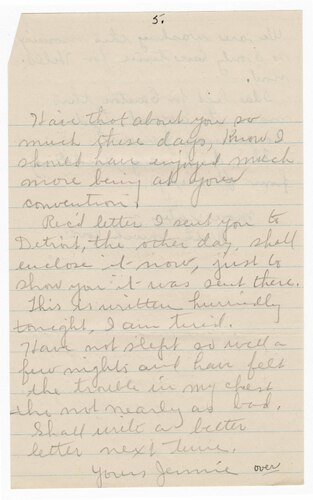 5.
Have thot about you so
much these days, know I
should have enjoyed much
more being at your
convention.
Rec'd letter I sent you to
Detroit, the other day, shall
enclose it now, just to
show you it was sent there.
This is written hurriedly
tonight, I am tired.
Have not slept so well a
few nights and have felt
the trouble in my chest
tho not nearly as bad.
Shall write a better
letter next time.
Yours Jennie
over